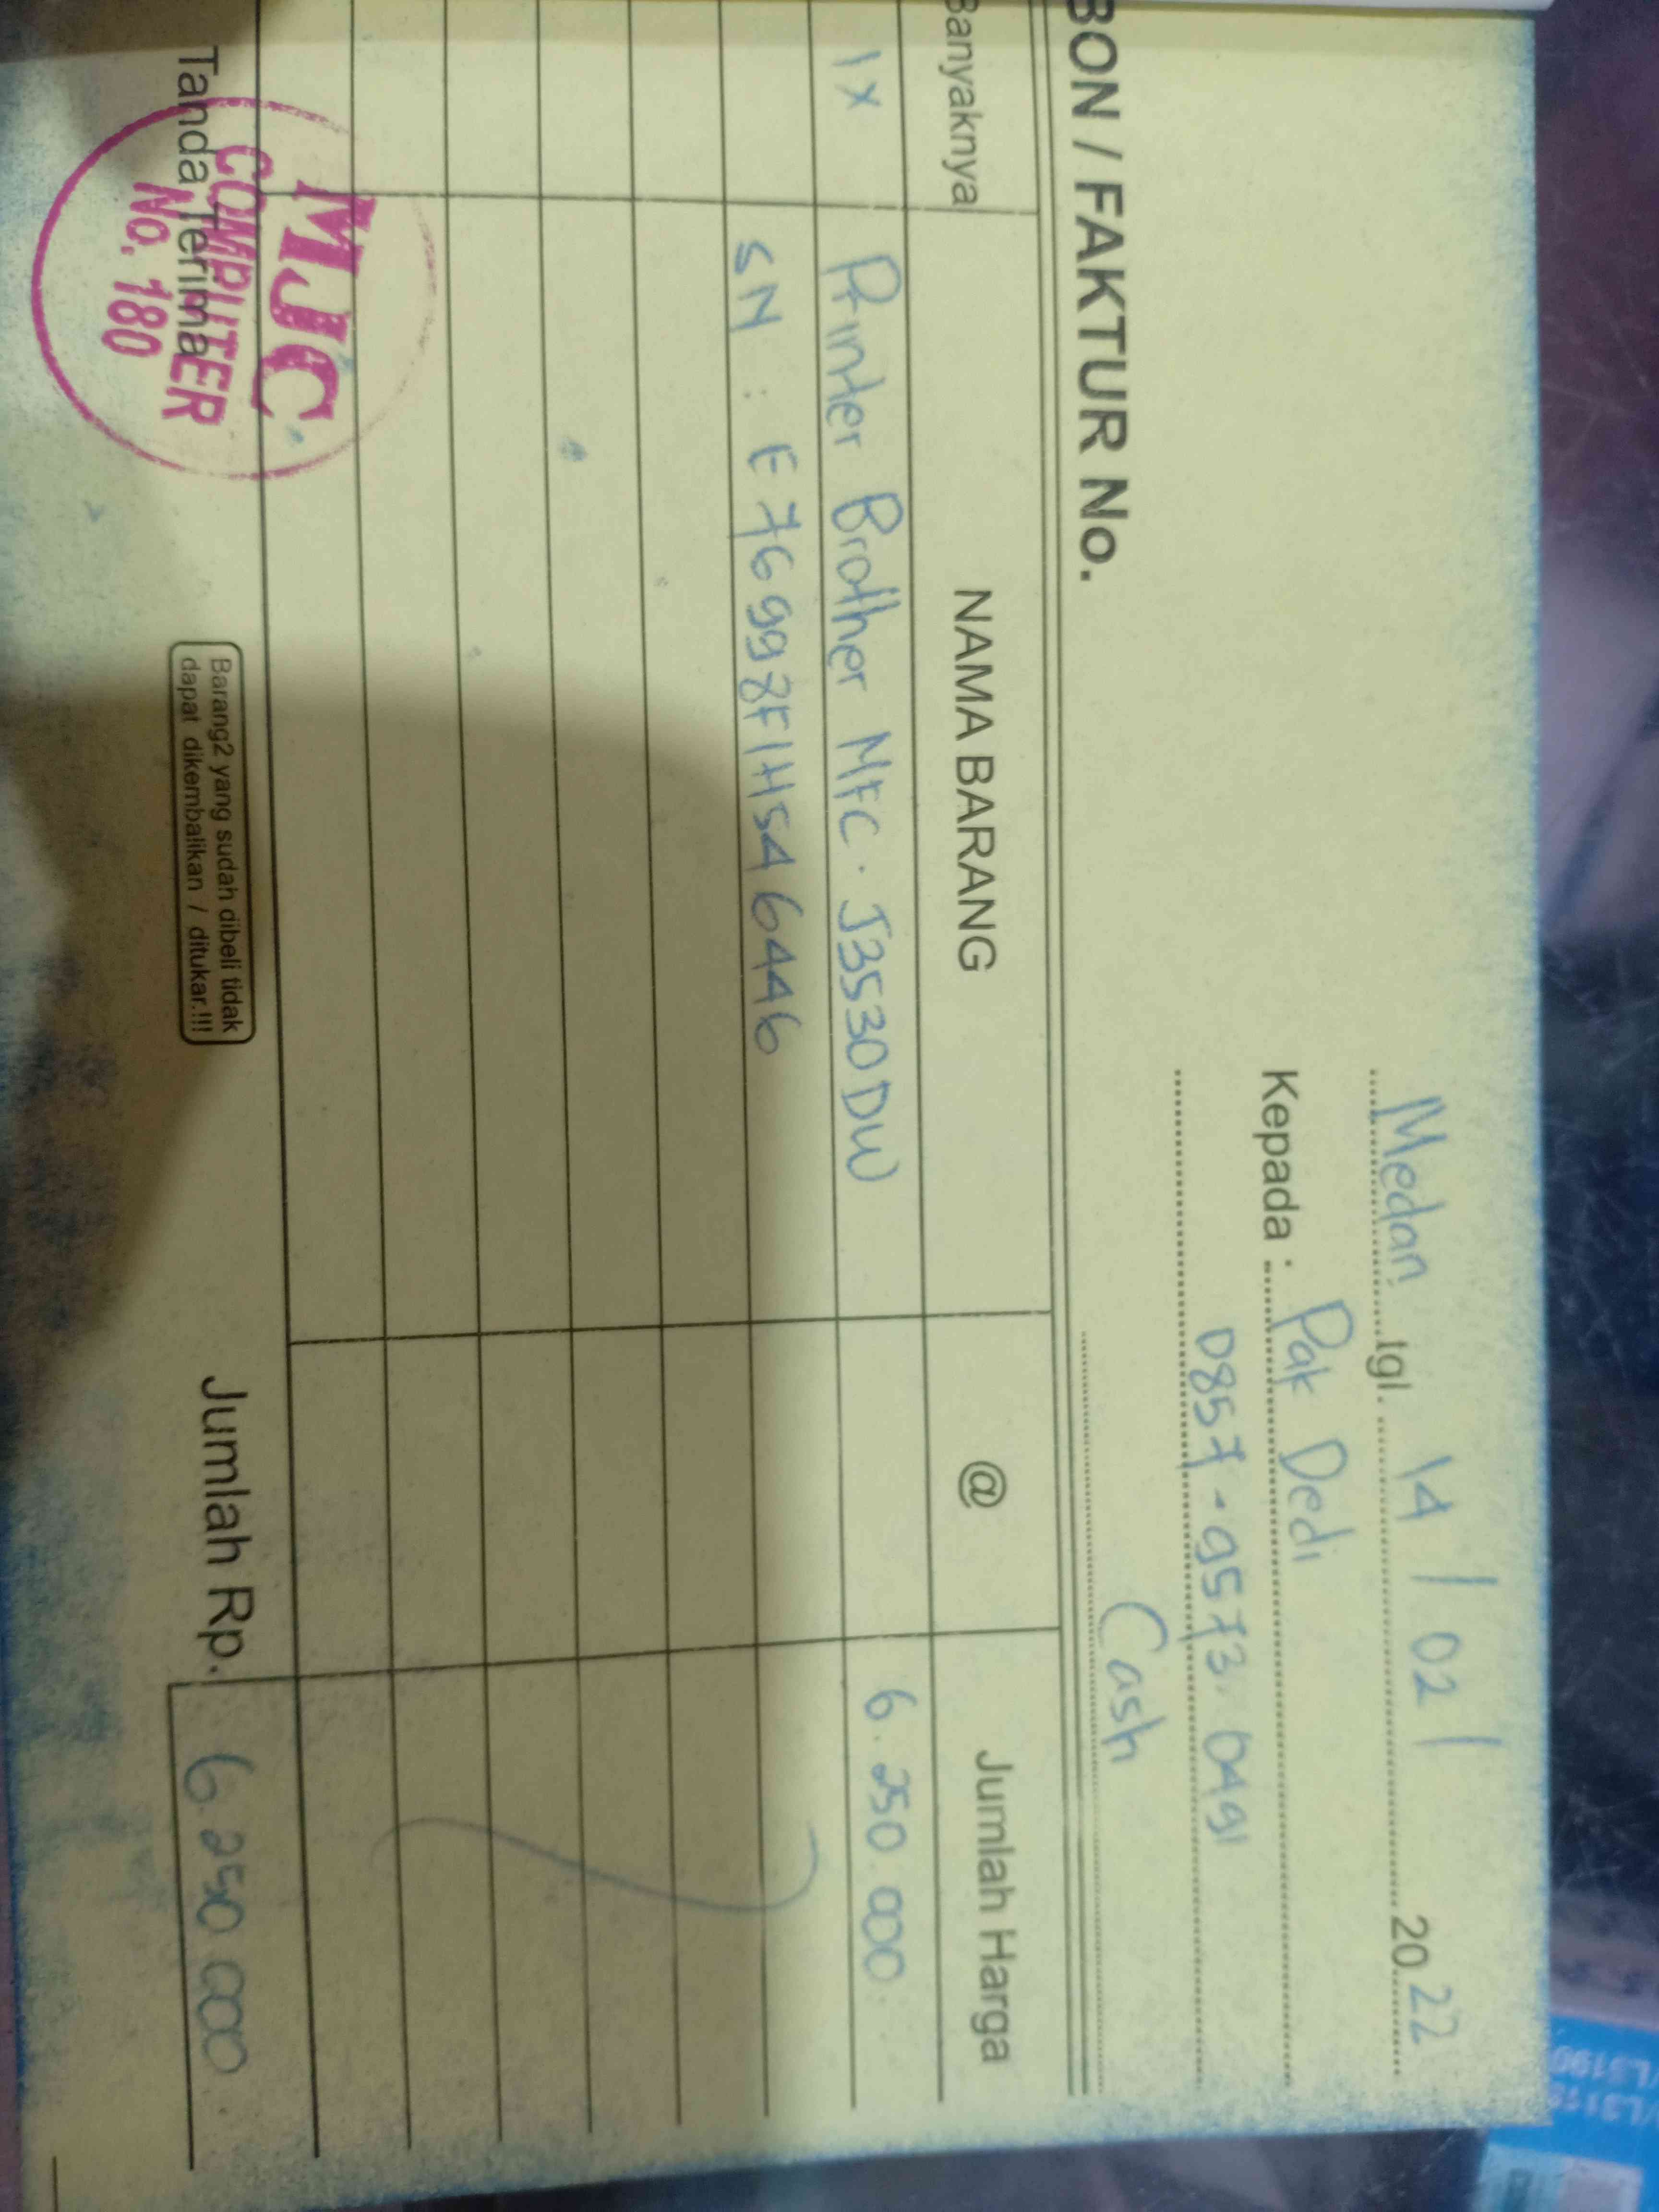 Medan tgl. 14 / 02 / 2022
Kepada : Pak Dedi
0857-9573.0491
BON / FAKTUR No.
Cash
Banyaknya NAMA BARANG @ Jumlah Harga
1x Printer Brother MFC. J3530DW 6.250.000
SN : E76998F1H546446
Tanda Terima
MJC
COMPUTER
No. 180
Barang2 yang sudah dibeli tidak
dapat dikembalikan / ditukar.!!!
Jumlah Rp. 6.250.000